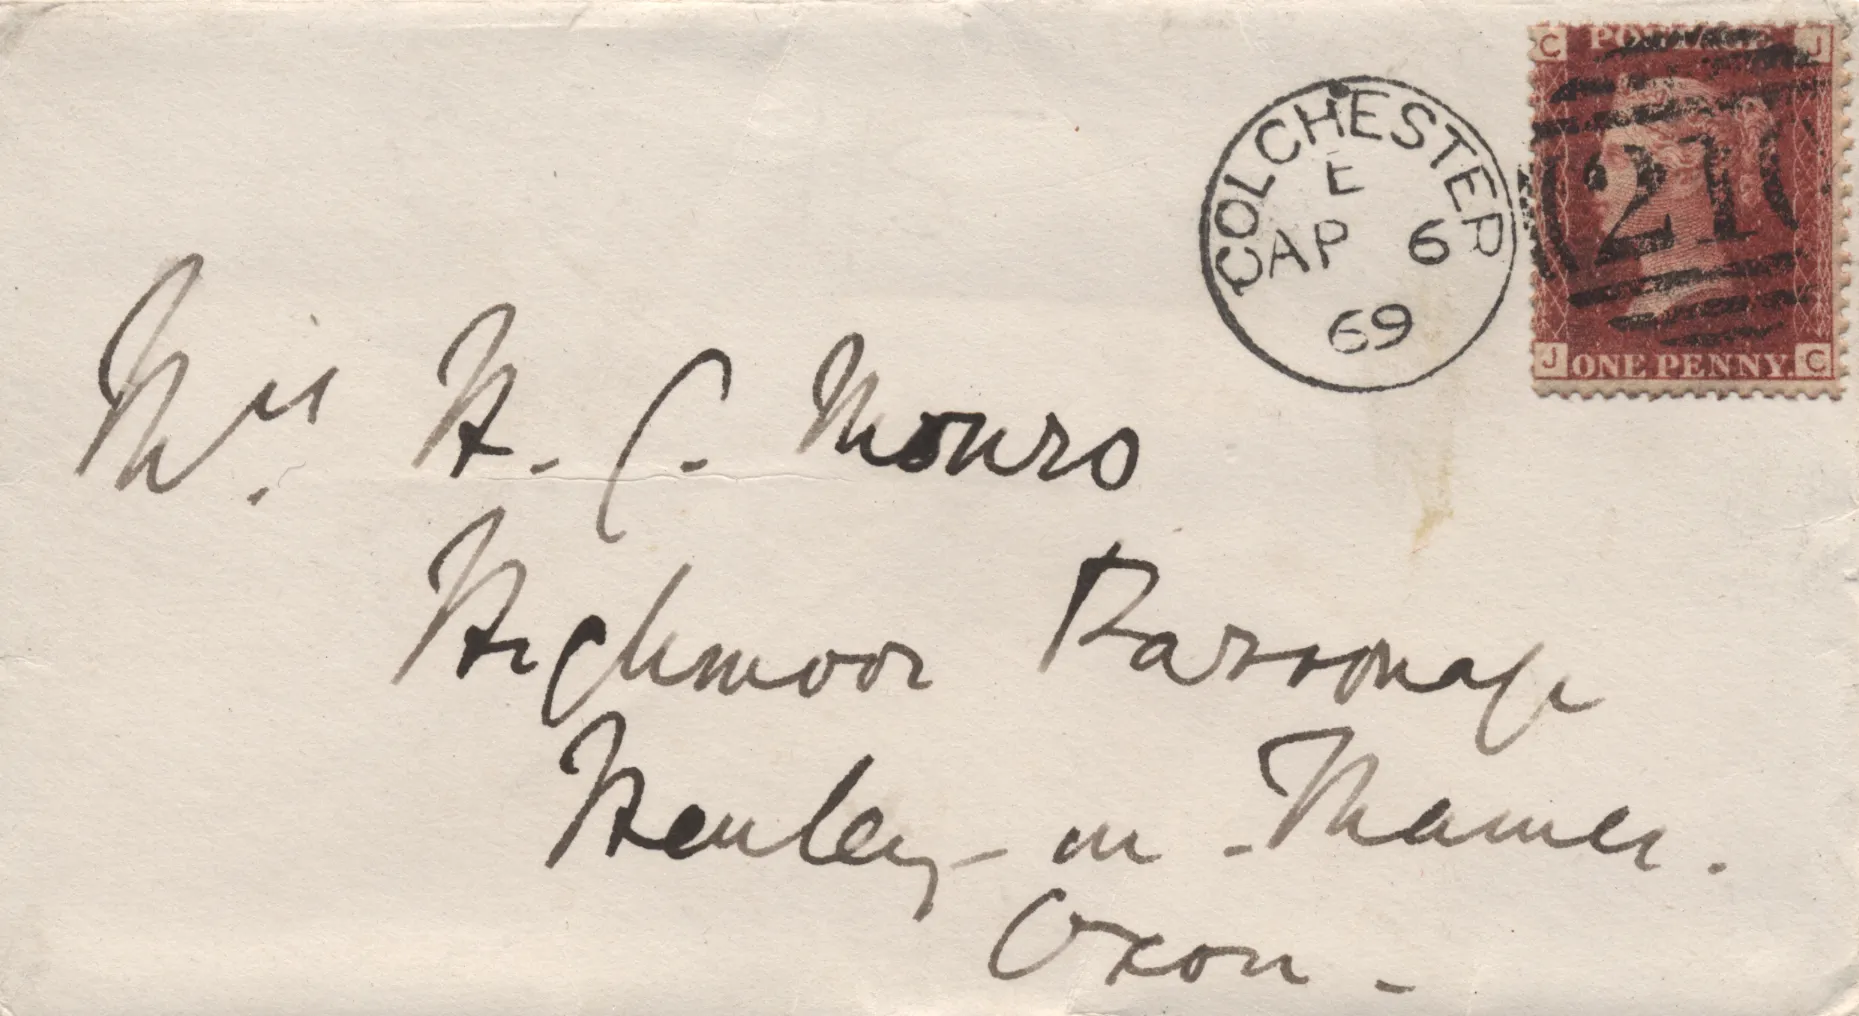 COLCHESTER
E
AP 6
69
C POSTAGE J
21
J ONE PENNY. C
H. C. Monro
Highmoor Parsonage
Henley-on-Thames.
Oxon.